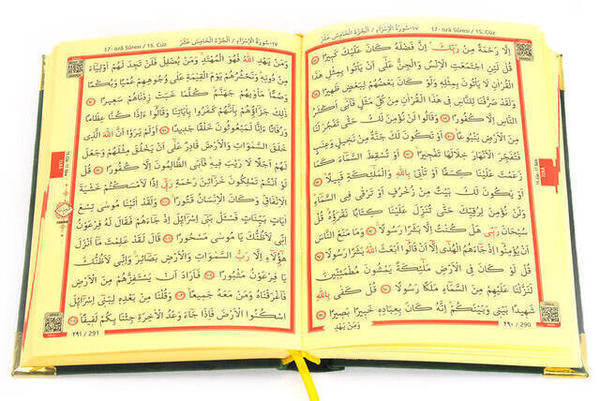 ١٧-سُورَةُ الْإِسْرَاءِ / اَلْجُزْءُ الْخَامِسَ عَشَرَ
17- İsrâ Sûresi / 15. Cüz
اِلَّا رَحْمَةً مِنْ رَبِّكَ اِنَّ فَضْلَهُ كَانَ عَلَيْكَ كَبِيرًا ﴿٨٧﴾
قُلْ لَئِنِ اجْتَمَعَتِ الْاِنْسُ وَالْجِنُّ عَلٰٓى اَنْ يَأْتُوا بِمِثْلِ هٰذَا
الْقُرْاٰنِ لَا يَأْتُونَ بِمِثْلِهِ وَلَوْ كَانَ بَعْضُهُمْ لِبَعْضٍ ظَهِيرًا ﴿٨٨﴾
وَلَقَدْ صَرَّفْنَا لِلنَّاسِ فِي هٰذَا الْقُرْاٰنِ مِنْ كُلِّ مَثَلٍ فَاَبٰٓى اَكْثَرُ
النَّاسِ اِلَّا كُفُورًا ﴿٨٩﴾ وَقَالُوا لَنْ نُؤْمِنَ لَكَ حَتّٰى تَفْجُرَ لَنَا
مِنَ الْاَرْضِ يَنْبُوعًا ﴿٩٠﴾ اَوْ تَكُونَ لَكَ جَنَّةٌ مِنْ نَخِيلٍ وَعِنَبٍ
فَتُفَجِّرَ الْاَنْهَارَ خِلَالَهَا تَفْجِيرًا ﴿٩١﴾ اَوْ تُسْقِطَ السَّمَٓاءَ كَمَا
زَعَمْتَ عَلَيْنَا كِسَفًا اَوْ تَأْتِيَ بِاللّٰهِ وَالْمَلٰٓئِكَةِ قَبِيلًا ﴿٩٢﴾
اَوْ يَكُونَ لَكَ بَيْتٌ مِنْ زُخْرُفٍ اَوْ تَرْقٰى فِي السَّمَٓاءِ
وَلَنْ نُؤْمِنَ لِرُقِيِّكَ حَتّٰى تُنَزِّلَ عَلَيْنَا كِتَابًا نَقْرَؤُهُ قُلْ
سُبْحَانَ رَبِّي هَلْ كُنْتُ اِلَّا بَشَرًا رَسُولًا ﴿٩٣﴾ وَمَا مَنَعَ النَّاسَ
اَنْ يُؤْمِنُوا اِذْ جَٓاءَهُمُ الْهُدٰٓى اِلَّٓا اَنْ قَالُوا اَبَعَثَ اللّٰهُ بَشَرًا رَسُولًا ﴿٩٤﴾
قُلْ لَوْ كَانَ فِي الْاَرْضِ مَلٰٓئِكَةٌ يَمْشُونَ مُطْمَئِنِّينَ
لَنَزَّلْنَا عَلَيْهِمْ مِنَ السَّمَٓاءِ مَلَكًا رَسُولًا ﴿٩٥﴾ قُلْ كَفٰى بِاللّٰهِ
شَهِيدًا بَيْنِي وَبَيْنَكُمْ اِنَّهُ كَانَ بِعِبَادِهِ خَبِيرًا بَصِيرًا ﴿٩٦﴾
٢٩٠ / 290
وَمَنْ يَهْدِ
17- İsrâ Sûresi / 15. Cüz
١٧-سُورَةُ الْإِسْرَاءِ / اَلْجُزْءُ الْخَامِسَ عَشَرَ
وَمَنْ يَهْدِ اللّٰهُ فَهُوَ الْمُهْتَدِ وَمَنْ يُضْلِلْ فَلَنْ تَجِدَ لَهُمْ اَوْلِيَٓاءَ
مِنْ دُونِهِ وَنَحْشُرُهُمْ يَوْمَ الْقِيٰمَةِ عَلٰى وُجُوهِهِمْ عُمْيًا وَبُكْمًا
وَصُمًّا مَأْوٰيهُمْ جَهَنَّمُ كُلَّمَا خَبَتْ زِدْنَاهُمْ سَعِيرًا ﴿٩٧﴾
ذٰلِكَ جَزَٓاؤُهُمْ بِاَنَّهُمْ كَفَرُوا بِاٰيَاتِنَا وَقَالُٓوا ءَاِذَا كُنَّا عِظَامًا
وَرُفَاتًا ءَاِنَّا لَمَبْعُوثُونَ خَلْقًا جَدِيدًا ﴿٩٨﴾ اَوَلَمْ يَرَوْا اَنَّ اللّٰهَ الَّذِي
خَلَقَ السَّمٰوَاتِ وَالْاَرْضَ قَادِرٌ عَلٰٓى اَنْ يَخْلُقَ مِثْلَهُمْ وَجَعَلَ
لَهُمْ اَجَلًا لَا رَيْبَ فِيهِ فَاَبَى الظَّالِمُونَ اِلَّا كُفُورًا ﴿٩٩﴾ قُلْ
لَوْ اَنْتُمْ تَمْلِكُونَ خَزَٓائِنَ رَحْمَةِ رَبِّي اِذًا لَاَمْسَكْتُمْ خَشْيَةَ
الْاِنْفَاقِ وَكَانَ الْاِنْسَانُ قَتُورًا ﴿١٠٠﴾ وَلَقَدْ اٰتَيْنَا مُوسٰى تِسْعَ
اٰيَاتٍ بَيِّنَاتٍ فَسْـَٔلْ بَنِٓي اِسْرَٓائِيلَ اِذْ جَٓاءَهُمْ فَقَالَ لَهُ فِرْعَوْنُ
اِنِّي لَاَظُنُّكَ يَا مُوسٰى مَسْحُورًا ﴿١٠١﴾ قَالَ لَقَدْ عَلِمْتَ مَٓا اَنْزَلَ
هٰٓؤُ۬لَٓاءِ اِلَّا رَبُّ السَّمٰوَاتِ وَالْاَرْضِ بَصَٓائِرَ وَاِنِّي لَاَظُنُّكَ
يَا فِرْعَوْنُ مَثْبُورًا ﴿١٠٢﴾ فَاَرَادَ اَنْ يَسْتَفِزَّهُمْ مِنَ الْاَرْضِ
فَاَغْرَقْنَاهُ وَمَنْ مَعَهُ جَمِيعًا ﴿١٠٣﴾ وَقُلْنَا مِنْ بَعْدِهِ لِبَنِٓي اِسْرَٓائِيلَ
اسْكُنُوا الْاَرْضَ فَاِذَا جَٓاءَ وَعْدُ الْاٰخِرَةِ جِئْنَا بِكُمْ لَفِيفًا ﴿١٠٤﴾
٢٩١ / 291